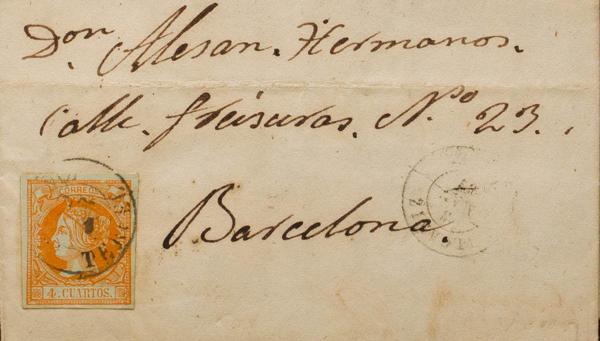 Don Alesan. Hermanos.
Calle. freisuras. Nº 23.
Barcelona.
CORREOS
1
TERUEL
4 CUARTOS.
21